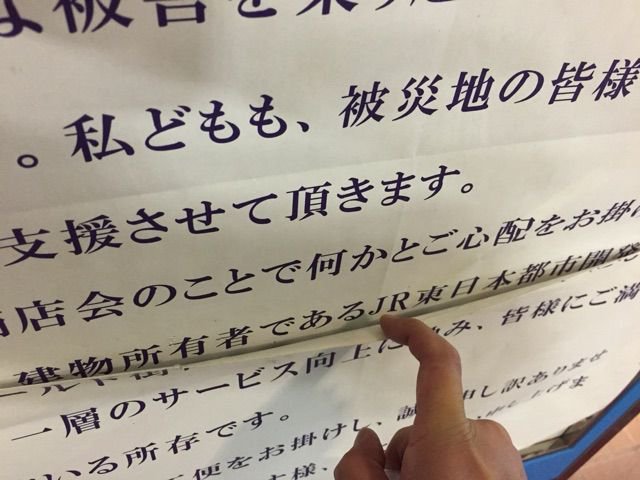 な被害を
。私どもも、被災地の皆様
支援させて頂きます。
店会のことで何かとご心配をお掛
建物所有者であるJR東日本都市開発
一層のサービス向上に み、皆様にご満
いる所存です。
便をお掛けし、誠 申し訳ありませ
様、 申し上げま